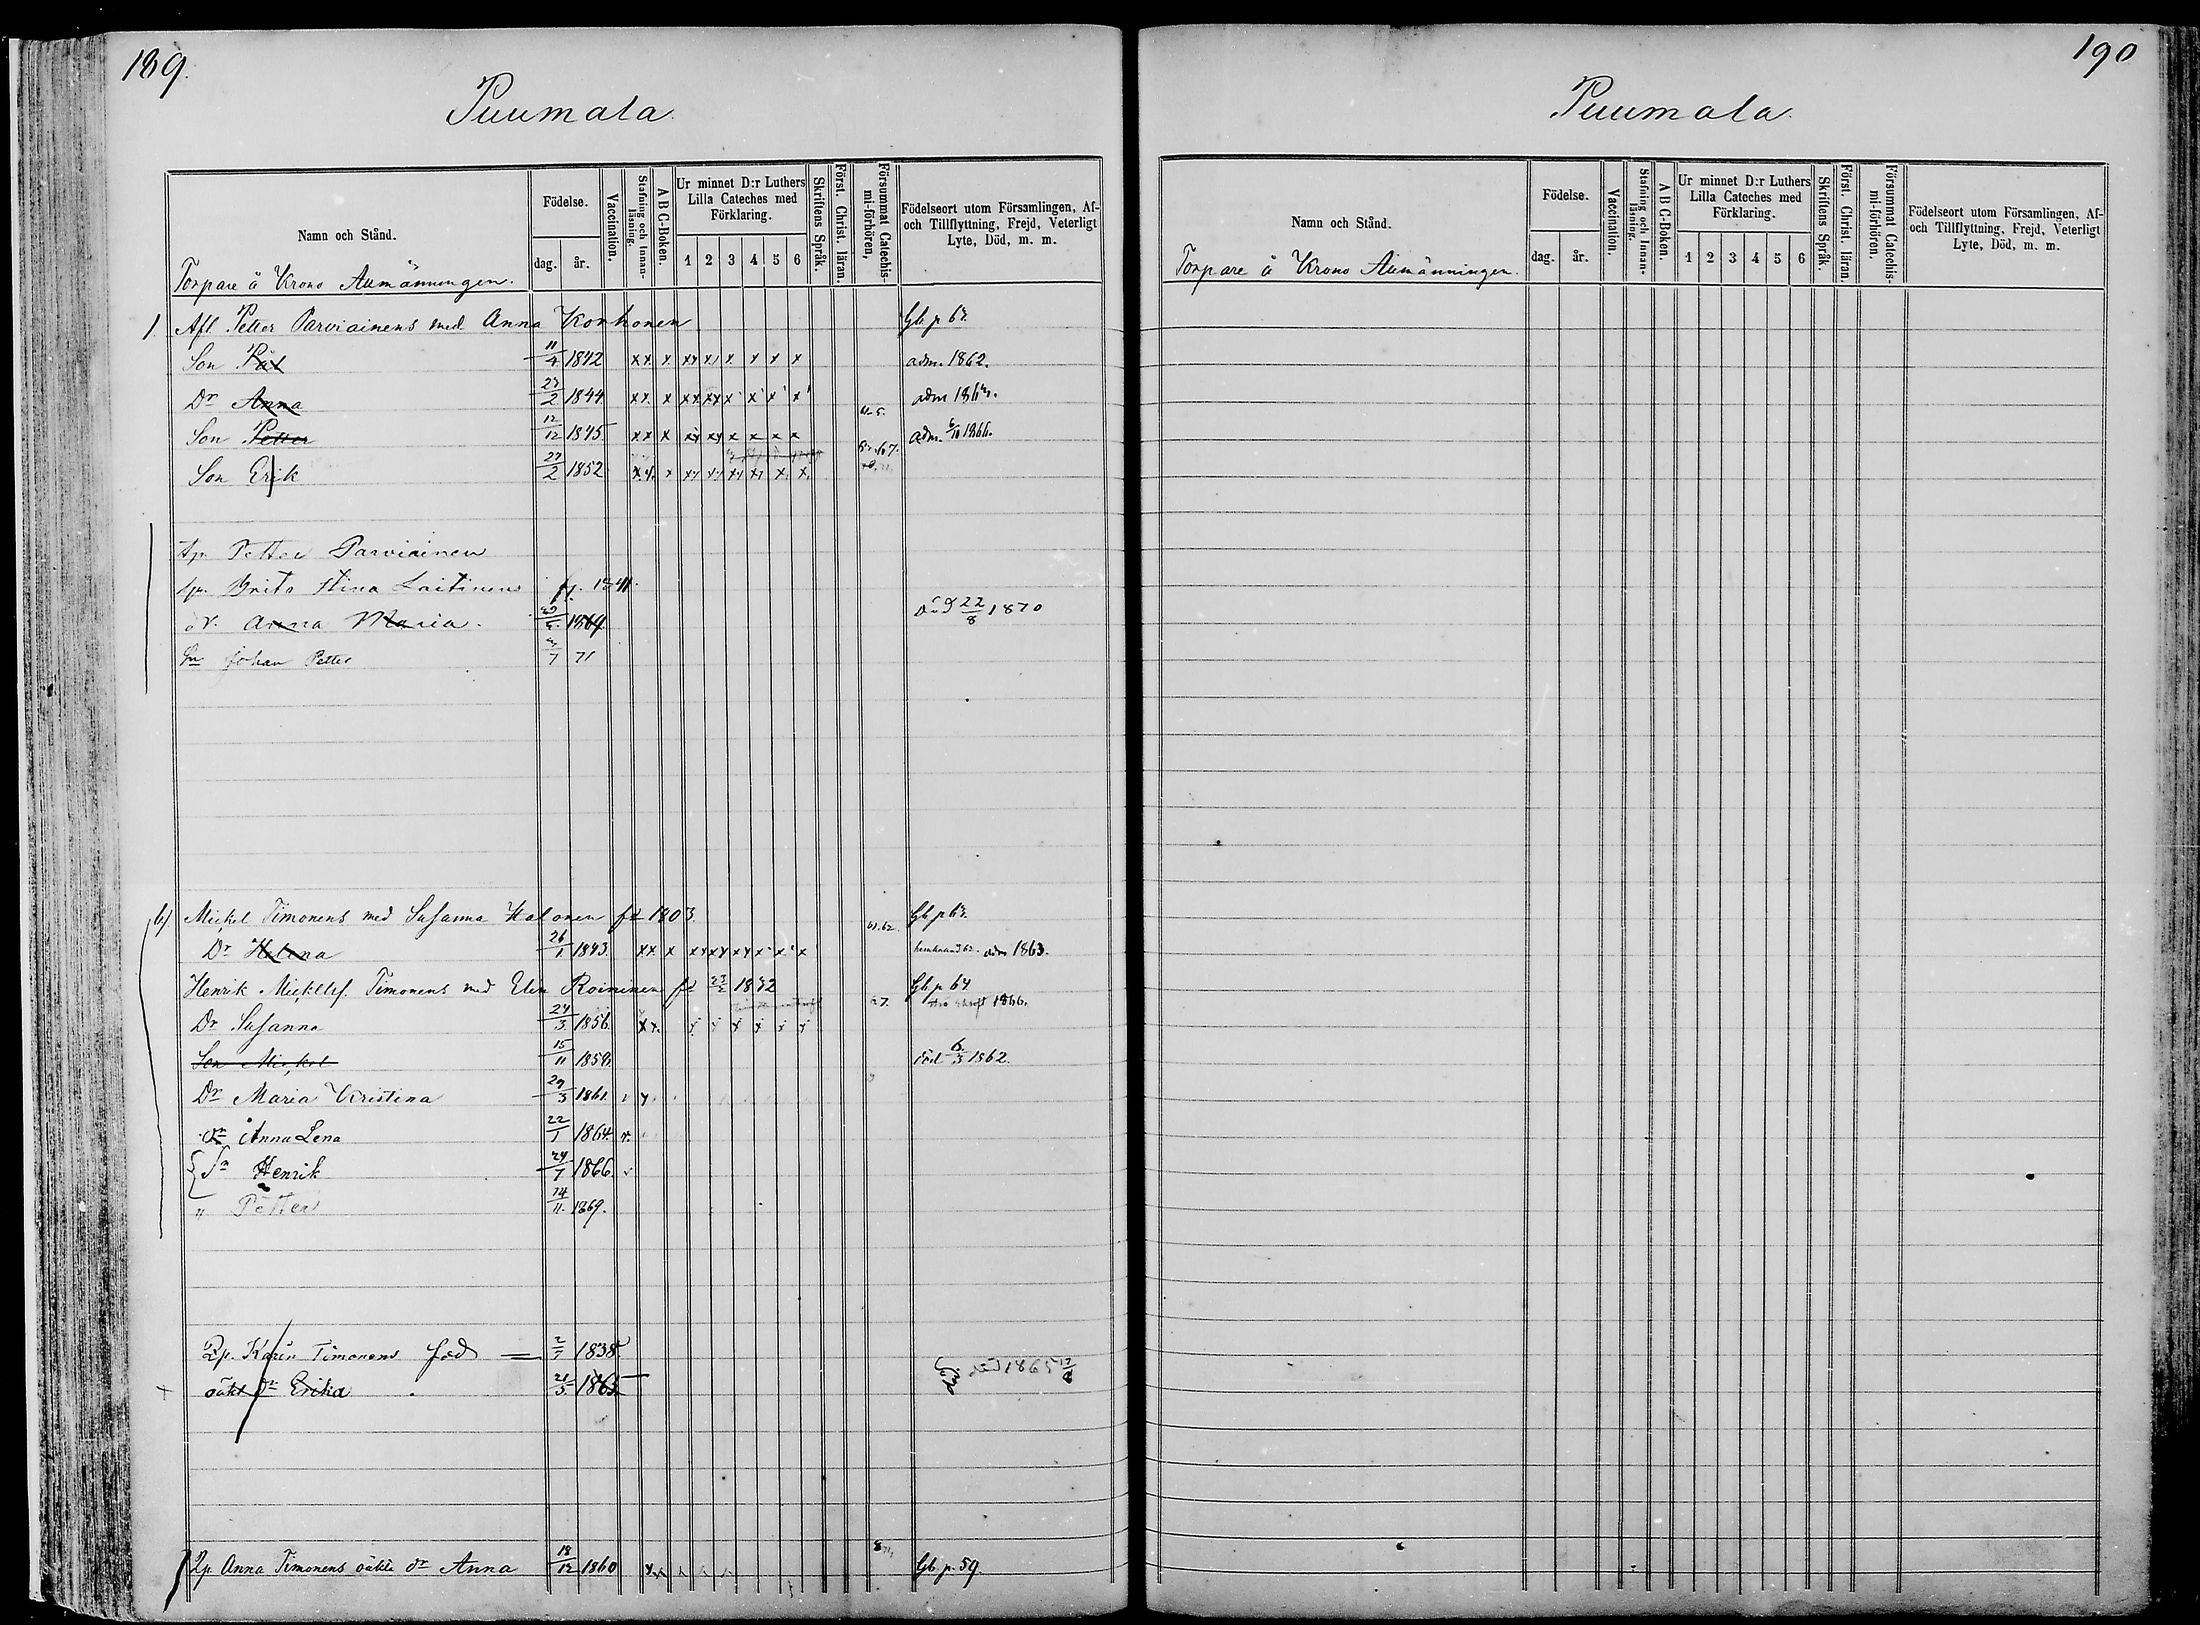 189.
Puumala.
Namn och Stånd.
Födelse.
dag. år.
Vaccination.
Stafning och Innanläsning.
A B C-Boken.
Ur minnet D:r Luthers Lilla Cateches med Förklaring.
1 2 3 4 5 6
Skriftens Språk.
Först. Christ. läran.
Försummat Catechismi-förhören,
Födelseort utom Församlingen, Af- och Tillflyttning, Frejd, Veterligt Lyte, Död, m. m.
Torpare å Krono Allmänningen.
1. Afl. Petter Parviainens med Anna Korhonen Gb p 63.
Son Pål 11/4 1842 xx x xx x x x x x adm. 1862.
Dr Anna 23/2 1844 xx x xx xx x x x x adm 1864.
Son Petter 12/12 1845 xx x xx xx x x x x adm. 6/10 1866.
Son Erik 27/2 1852 x x x
Petter Parviainen
Brita Stina Laitinens 1841.
dr. Anna Maria. 1869. död 22/8 1870
Sn Johan Petter 7 71
6) Mickel Timonens med Susanna Halonen fd 1803. 61.62. Gb p 63.
Dr Helena 26/1 1843. xx x xx xx xx x x x adm 1863.
Henrik Mickelss. Timonens med Elin Roininen fd 23/2 1832 Gb p 64
1866.
Dr Susanna 24/3 1856.
Son Mickel 15/11 1859. död 6/3 1862.
Dr Maria Kristina 29/3 1861.
dr Anna Lena 22/1 1864.
Sn Henrik 24/7 1866.
" Petter 14/11. 1869.
Karin Timonens fœd 2/7 1838
oäkt dr Erika 21/5 1865 död 1865
Anna Timonens oäkta dr Anna 18/12 1860 Gb p. 59.
190
Puumala.
Namn och Stånd.
Födelse.
dag. år.
Vaccination.
Stafning och Innanläsning.
A B C-Boken.
Ur minnet D:r Luthers Lilla Cateches med Förklaring.
1 2 3 4 5 6
Skriftens Språk.
Först. Christ. läran.
Försummat Catechismi-förhören.
Födelseort utom Församlingen, Af- och Tillflyttning, Frejd, Veterligt Lyte, Död, m. m.
Torpare å Krono Allmänningen.